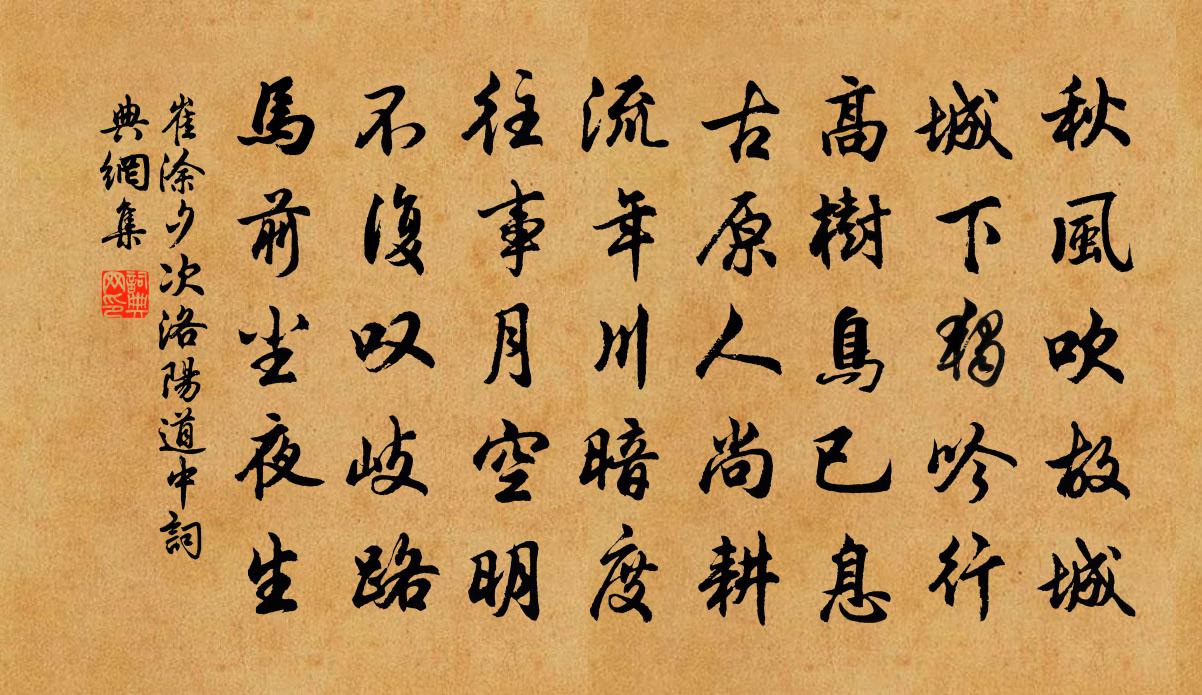 秋風吹故城
城下獨吟行
高樹鳥已息
古原人尚耕
流年川暗度
往事月空明
不復叹岐路
馬前尘夜生
崔涂夕次洛陽道中詞
典網集
詞典網印